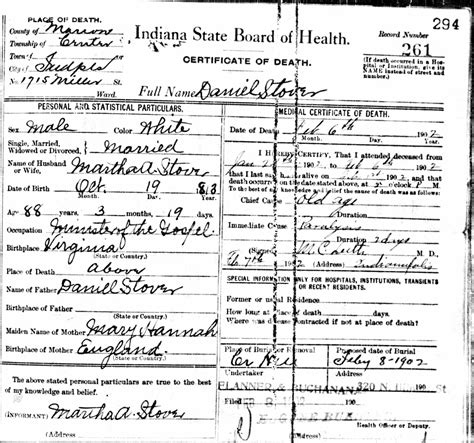 294
PLACE OF DEATH.
County of Marion
Township of Center
Town of
City of Indpls
No 1915 Miller St
Ward.
Indiana State Board of Health.
CERTIFICATE OF DEATH.
Record Number
261
(If death occurred in a Hospital or Institution, give its NAME instead of street and number.)
Full Name Daniel Stover
PERSONAL AND STATISTICAL PARTICULARS.
Sex Male Color White
Single, Married, Widowed or Divorced Married
Name of Husband or Wife, Martha A. Stover
Date of Birth Oct 19 813
Month, Day, Year
Age 88 years, 3 months, 19 days.
Occupation Minister of the Gospel
Birthplace Virginia
(State or Country)
Place of Death above
Name of Father Daniel Stover
Birthplace of Father
(State or Country)
Maiden Name of Mother Mary Hannah
Birthplace of Mother England.
(State or Country)
The above stated personal particulars are true to the best of my knowledge and belief.
(INFORMANT) Martha A. Stover
MEDICAL CERTIFICATE OF DEATH.
Date of Death Feb 6th 1902
Month, Day, Year
I HEREBY CERTIFY, That I attended deceased
from Jan 1902 to Feb 6th 1902
that I last saw alive on 1902 that
death occurred on the date stated above, at o'clock P M.
To the best of my knowledge and belief the cause of death was as follows:
Chief Cause old age
Duration
Immediate Cause Paralysis
Duration days
(Signed) M. D.
Feb 7th 1902 (Address) Indianapolis
SPECIAL INFORMATION ONLY FOR HOSPITALS, INSTITUTIONS, TRANSIENTS OR RECENT RESIDENTS.
Former or usual Residence
How long at place of death days
Where was disease contracted if not at place of death?
Place of Burial or Removal Proposed date of Burial
Cr Hill Feby 8-1902
FLANNER & BUCHANAN, 320 N. St
1902
Health Officer or Deputy